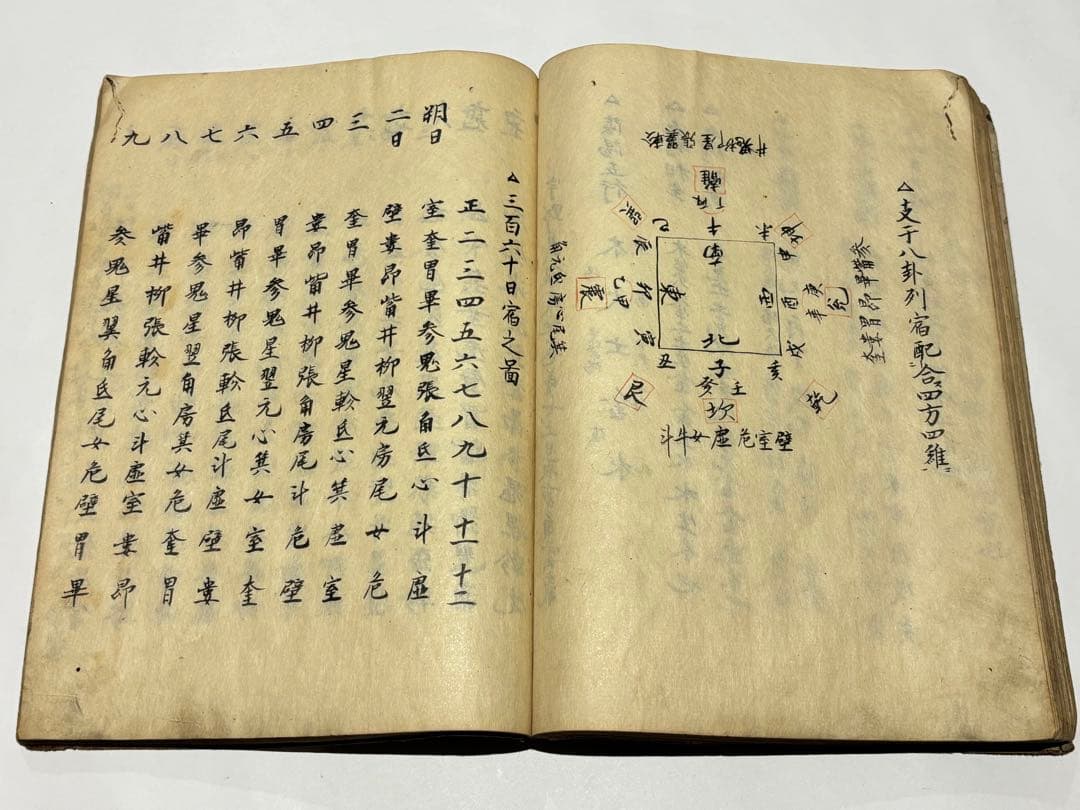 △支干八卦列宿配合四方四維
井鬼柳星張翼軫
離
丁丙
午
南
未
坤
申
西
酉
庚辛
兌
奎婁胃昴畢觜參
戌
亥
乾
北
子
癸壬
坎
斗牛女虛危室壁
丑
艮
寅
東
卯
乙甲
震
角元氐房心尾箕
辰
巳
巽
△三百六十日宿之啚
正二三四五六七八九十十一十二
朔日 室奎胃畢參鬼張角氐心斗虛
二日 壁婁昴觜井柳翌元房尾女危
三 奎胃畢參鬼星軫氐心箕虛室
四 婁昴觜井柳張角房尾斗危壁
五 胃畢參鬼星翌元心箕女室奎
六 昴觜井柳張軫氐尾斗虛壁婁
七 畢參鬼星翌角房箕女危奎胃
八 觜井柳張軫元心斗虛室婁昴
九 參鬼星翼角氐尾女危壁胃畢